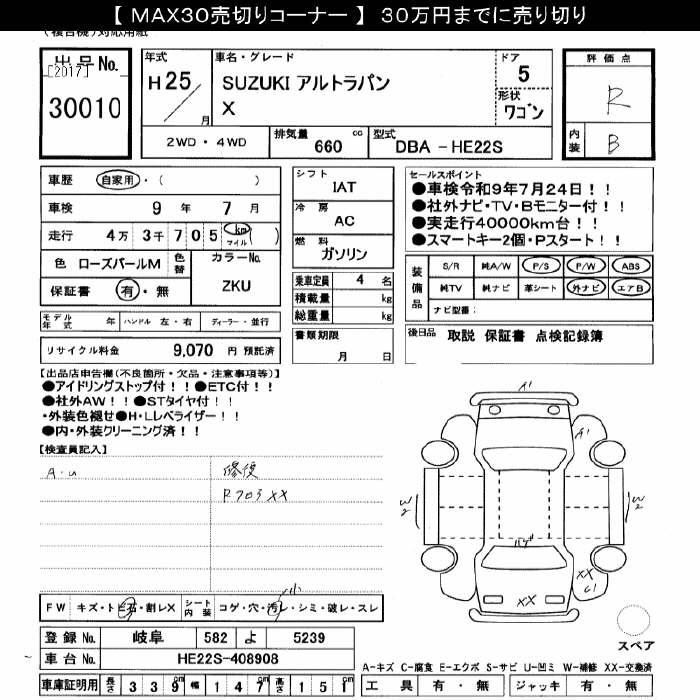 【 MAX30売切りコーナー 】 30万円までに売り切り
出品No.
[2017]
30010
年式
H 25
月
車名・グレード
SUZUKI アルトラパン
X
ドア
5
形状
ワゴン
評価点
R
内装
B
2WD ・ 4WD
排気量
660 cc
型式
DBA - HE22S
車歴 自家用 ・ ( )
車検 9 年 7 月
走行 4万 3千 7 0 5 km マイル ( )
色 ローズパールM 色替
カラーNo.
ZKU
保証書 有 ・ 無
モデル年式 年 ハンドル 左・右 ディーラー・並行
リサイクル料金 9,070 円 預託済
シフト
IAT
冷房
AC
燃料
ガソリン
乗車定員 4 名
積載量 kg
総重量 kg
書類期限
月 日
セールスポイント
●車検令和9年7月24日！！
●社外ナビ・TV・Bモニター付！！
●実走行40000km台！！
●スマートキー2個・Pスタート！！
装備品
S/R 純A/W P/S P/W ABS
純TV 純ナビ 革シート 外ナビ エアB
ナビ型番：
後日品 取説 保証書 点検記録簿
【出品店申告欄(不良箇所・欠品・注意事項等)】
●アイドリングストップ付！！●ETC付！！
●社外AW！！●STタイヤ付！！
・外装色褪せ●H・Lレベライザー！！
●内・外装クリーニング済！！
【検査員記入】
A・u
修復
Rフロア XX
A1
A1
W2
W2
XX
C1
XX
FW キズ・トビ石・割レX
シート内装 コゲ・穴・汚レ・シミ・破レ・スレ
小
登録No. 岐阜 582 よ 5239
車台No. HE22S-408908
車庫証明用 長さ 3 3 9 cm 幅 1 4 7 cm 高さ 1 5 1 cm
スペア
A-キズ C-腐食 E-エクボ S-サビ U-凹ミ W-補修 XX-交換済
工具 有 ・ 無 ジャッキ 有 ・ 無